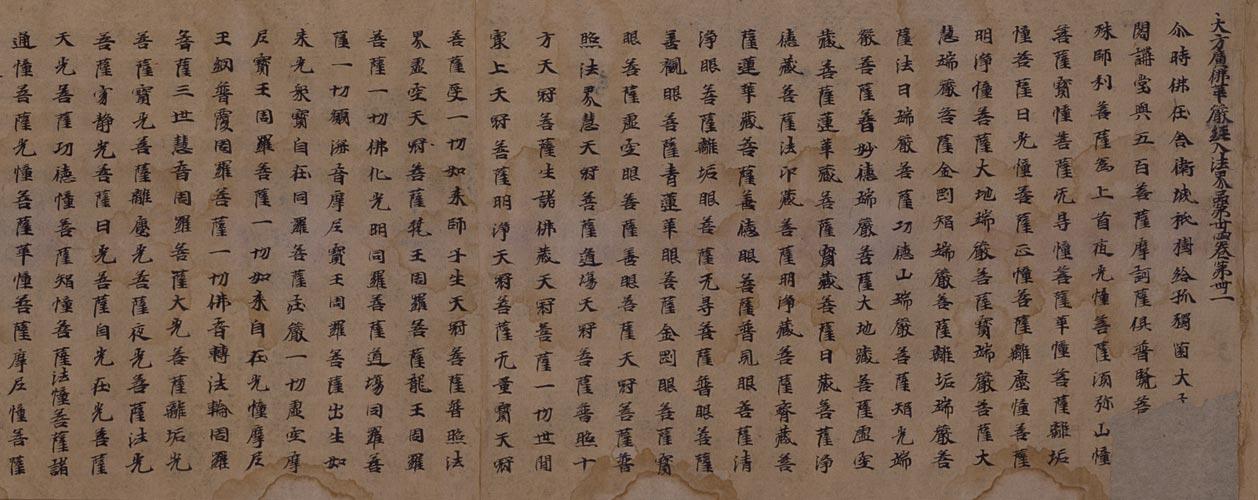 大方廣佛華嚴經入法界品第卅四卷第卌一
尒時佛在舍衛城祇樹給孤獨薗大
閣講堂與五百菩薩摩訶薩俱普賢菩
殊師利菩薩爲上首夜光幢菩薩湏弥山幢
菩薩寶幢菩薩无㝵幢菩薩華幢菩薩離垢
幢菩薩日光幢菩薩正幢菩薩離塵幢菩薩
明淨幢菩薩大地端嚴菩薩寶端嚴菩薩大
慧端嚴菩薩金剛智端嚴菩薩離垢端嚴菩
薩法日端嚴菩薩功德山端嚴菩薩智光端
嚴菩薩普妙德端嚴菩薩大地藏菩薩虛空
藏菩薩蓮華藏菩薩寶藏菩薩日藏菩薩淨
德藏菩薩法印藏菩薩明淨藏菩薩齊藏菩
薩蓮華藏菩薩善德眼菩薩普見眼菩薩清
淨眼菩薩離垢眼菩薩无㝵菩薩普眼菩薩
善觀眼菩薩青蓮華眼菩薩金剛眼菩薩寶
眼菩薩虛空眼菩薩善眼菩薩天冠菩薩普
照法界慧天冠菩薩道場天冠菩薩普照十
方天冠菩薩生諸佛藏天冠菩薩一切世閒
寂上天冠菩薩明淨天冠菩薩无量寶天冠
菩薩受一切如来師子坐天冠菩薩普照法
界虛空天冠菩薩梵王周羅菩薩龍王周羅
菩薩一切佛化光明周羅菩薩道場周羅菩
薩一切願海音摩尼寶王周羅菩薩出生如
来光衆寶自在周羅菩薩莊嚴一切虛空摩
尼寶王周羅菩薩一切如来自在光幢摩尼
王網普覆周羅菩薩一切佛音轉法輪周羅
菩薩三世慧音周羅菩薩大光菩薩離垢光
菩薩寶光菩薩離塵光菩薩夜光菩薩法光
菩薩寂靜光菩薩日光菩薩自在光菩薩
天光菩薩功德幢菩薩智幢菩薩法幢菩薩諸
通幢菩薩光幢菩薩華幢菩薩摩尼幢菩薩